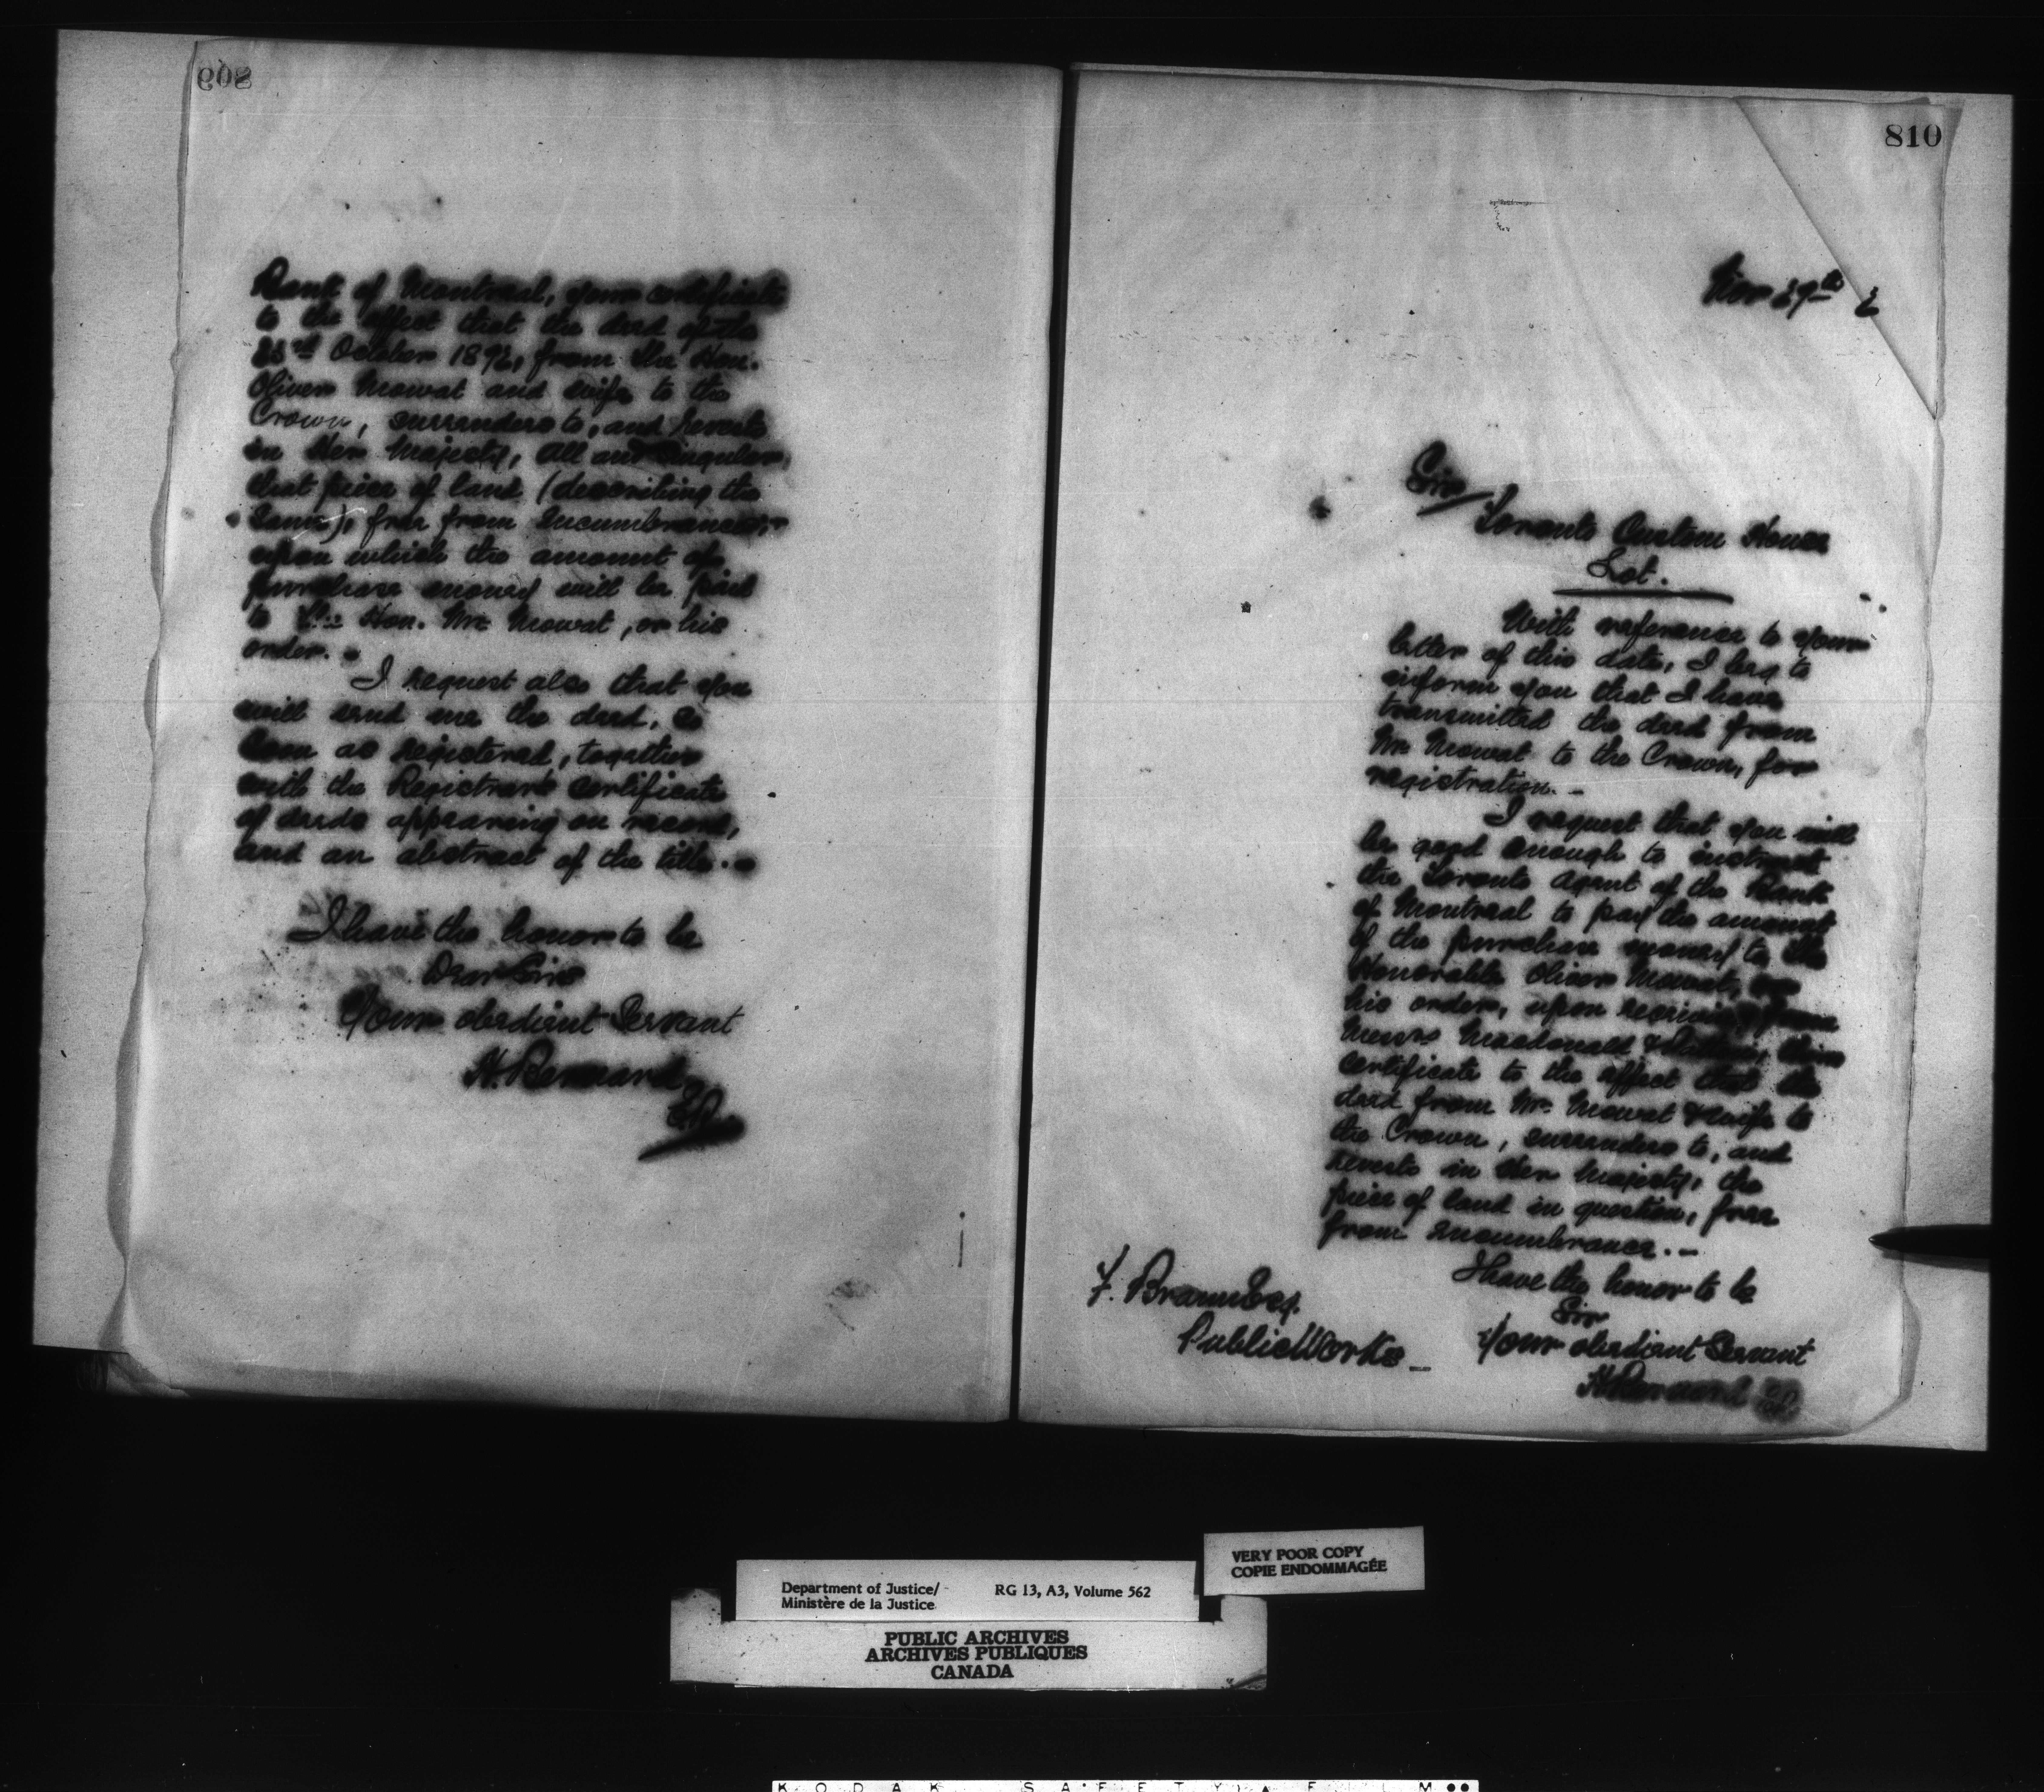 809
Bank of Montreal, your certificate
to the effect that the deed of the
October 187, from the Hon.
Oliver Mowat and wife to the
Crown, surrenders to, and revests
in Her Majesty, All and Singular,
that piece of land (describing the
same), free from encumbrances,
upon which the amount of
purchase money will be paid
to the Hon. Mr. Mowat, or his
order. -
I request also that you
will send me the deed, as
soon as registered, together
with the Registrar's certificate
of deeds appearing on record,
and an abstract of the title. -
I have the honor to be
Dear Sirs
Your obedient Servant
H. Bernard
810
Nov 29th 2
Sir
Toronto Custom House
Lot.
With reference to your
letter of this date, I beg to
inform you that I have
transmitted the deed from
Mr. Mowat to the Crown, for
registration. -
I request that you will
be good enough to instruct
the Toronto Agent of the Bank
of Montreal to pay the amount
of the purchase money to the
Honorable Oliver Mowat, or
his order, upon receiving from
Messrs Macdonald & their
certificate to the effect that the
deed from Mr. Mowat & wife to
the Crown, surrenders to, and
revests in Her Majesty, the
piece of land in question, free
from encumbrance. -
I have the honor to be
Sir
Your obedient Servant
H Bernard
F. Braun Esq.
Public Works -
VERY POOR COPY
COPIE ENDOMMAGÉE
Department of Justice/ RG 13, A3, Volume 562
Ministère de la Justice
PUBLIC ARCHIVES
ARCHIVES PUBLIQUES
CANADA
KODAK SAFETY FILM